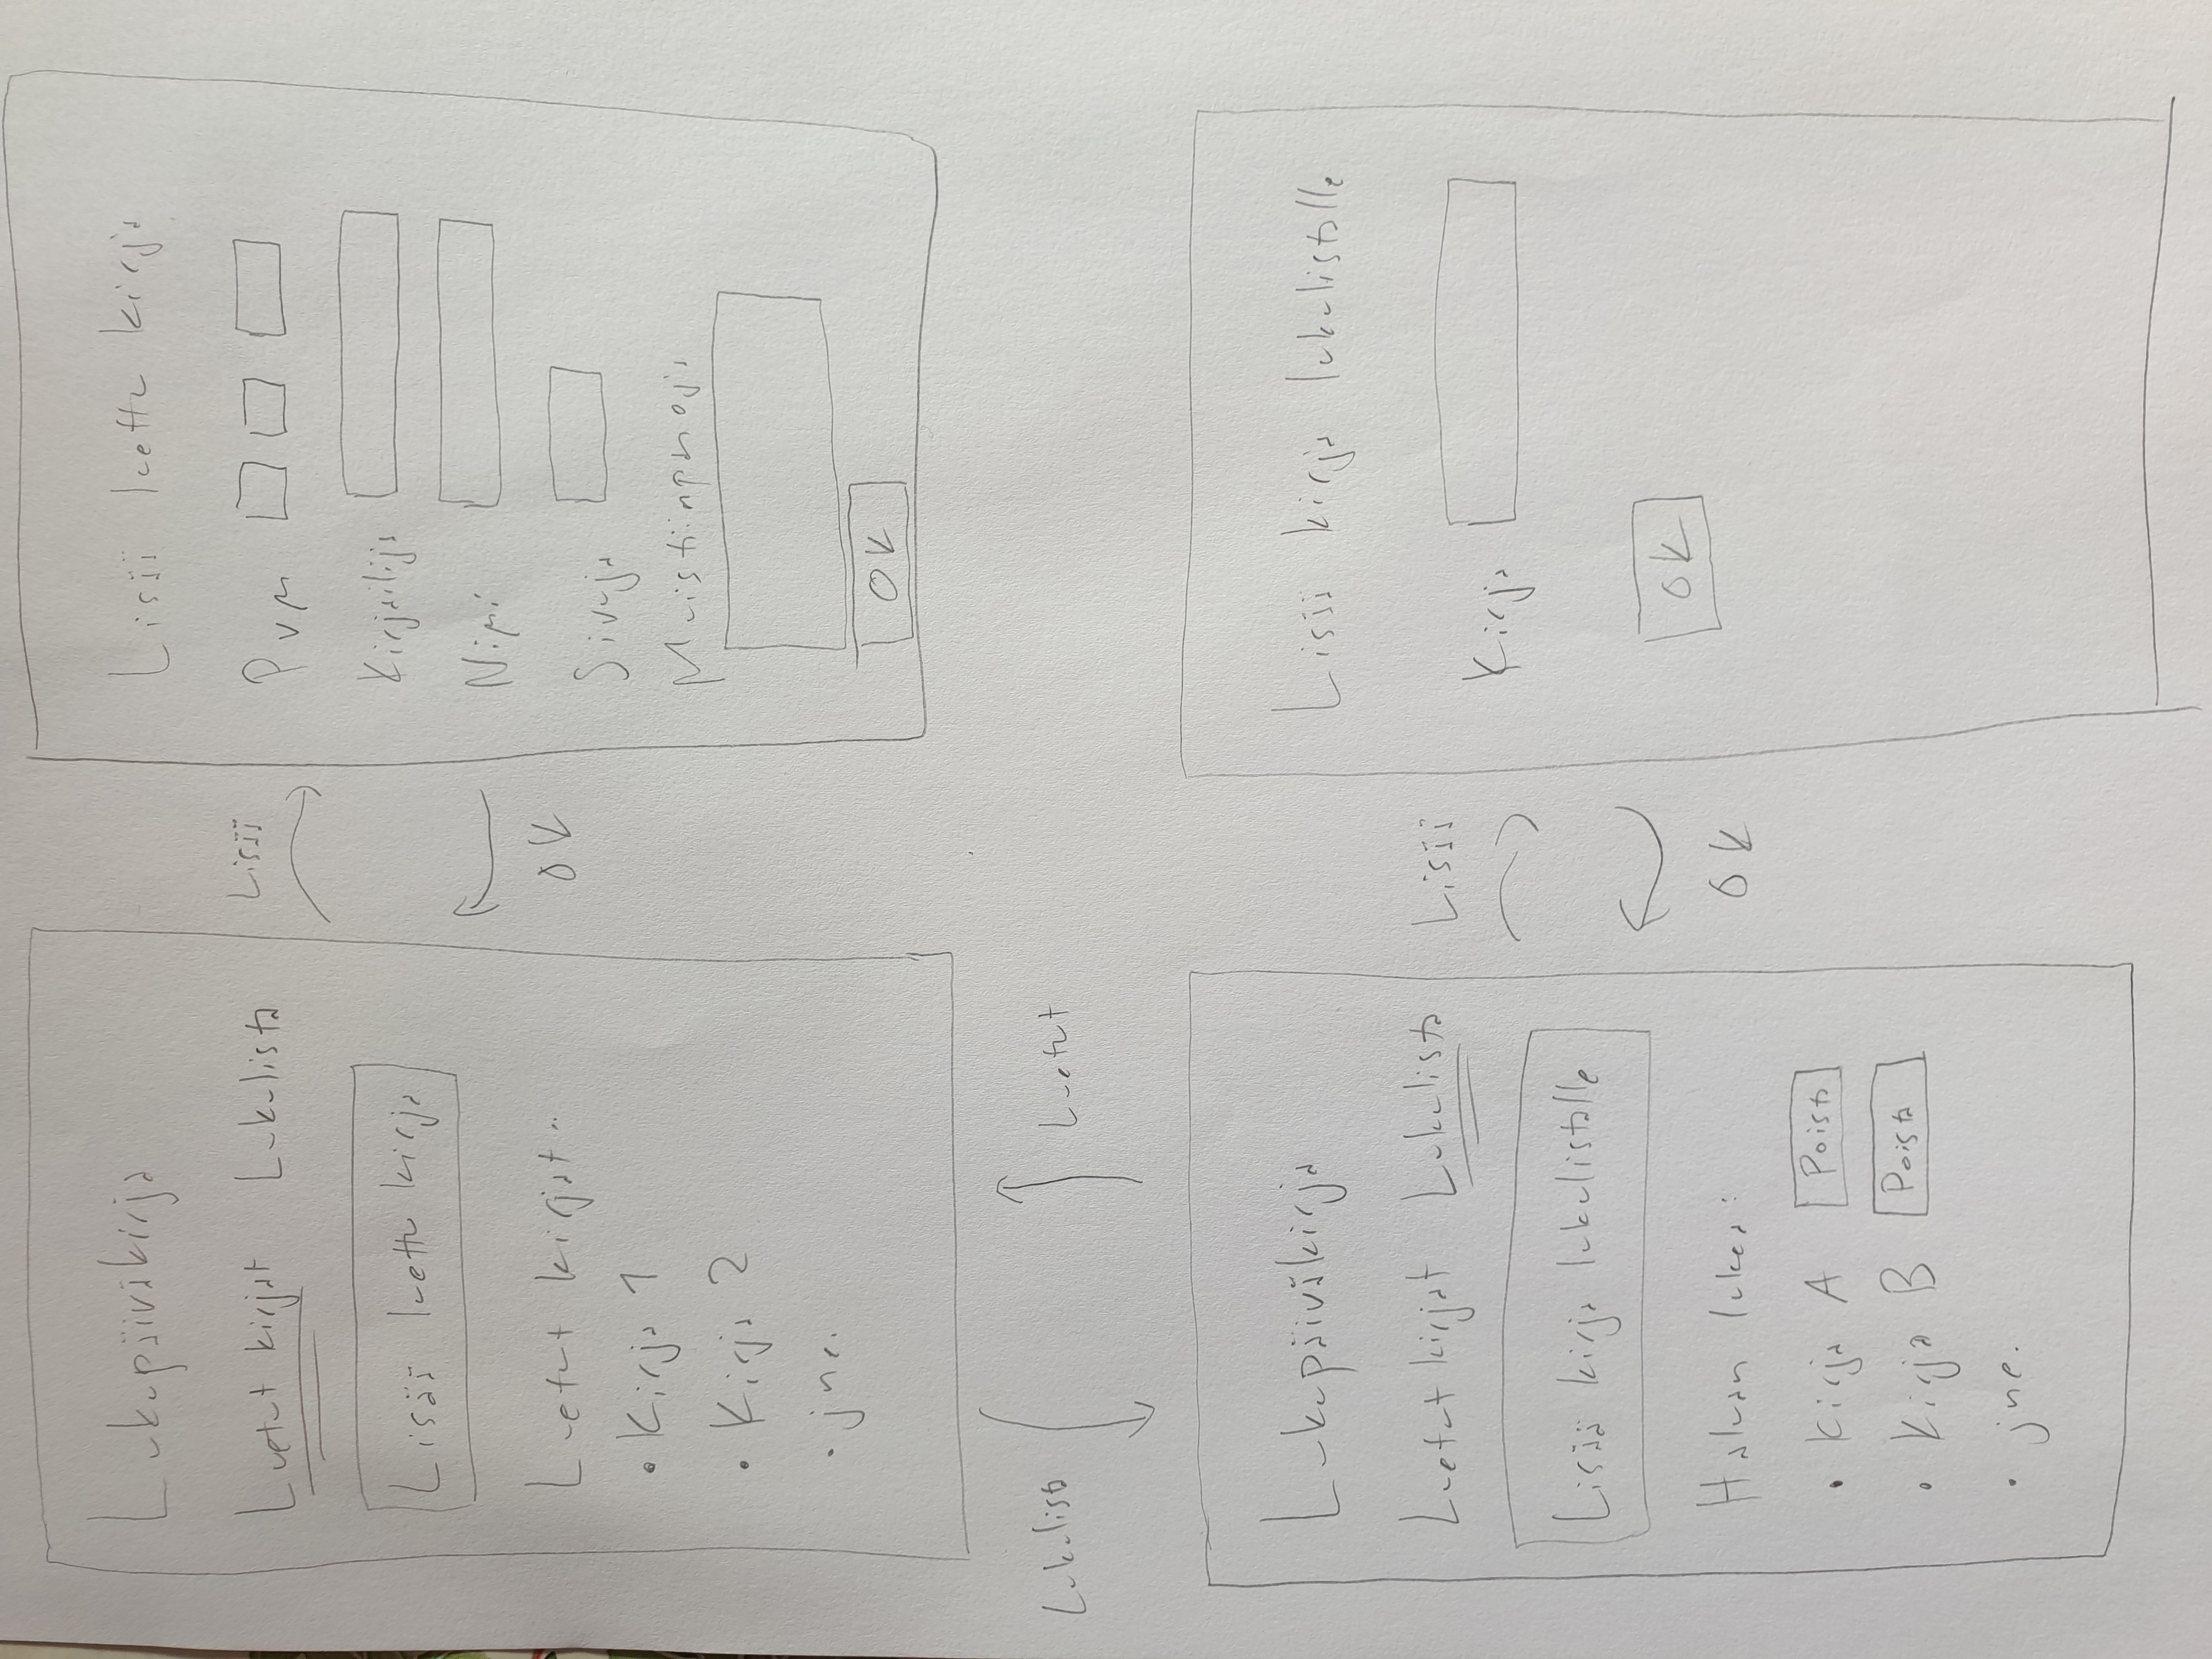 Lukupäiväkirja
Luetut kirjat Lukulista
Lisää luettu kirja
Luetut kirjat:
• Kirja 1
• Kirja 2
• jne.
Lisää
OK
Lisää luettu kirja
Pvm
Kirjailija
Nimi
Sivuja
Muistiinpanoja
OK
Lukulista
Luetut
Lukupäiväkirja
Luetut kirjat Lukulista
Lisää kirja lukulistalle
Haluan lukea:
• Kirja A Poista
• Kirja B Poista
• jne.
Lisää
OK
Lisää kirja lukulistalle
Kirja
OK